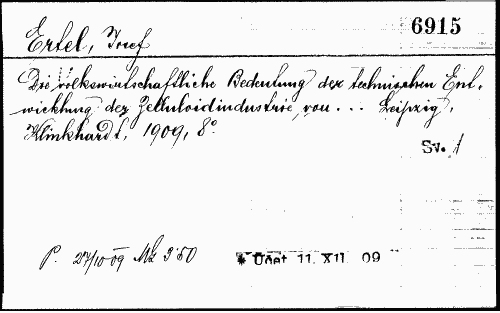 6915
Ertel, Josef
Die volkswirtschaftliche Bedeutung der technischen Ent-
wicklung der Zelluloidindustrie von ... Leipzig,
Klinkhardt, 1909, 8°
Sv. 1
P. 27/10 09 Mk 3·50 * Účet 11. XII. 09